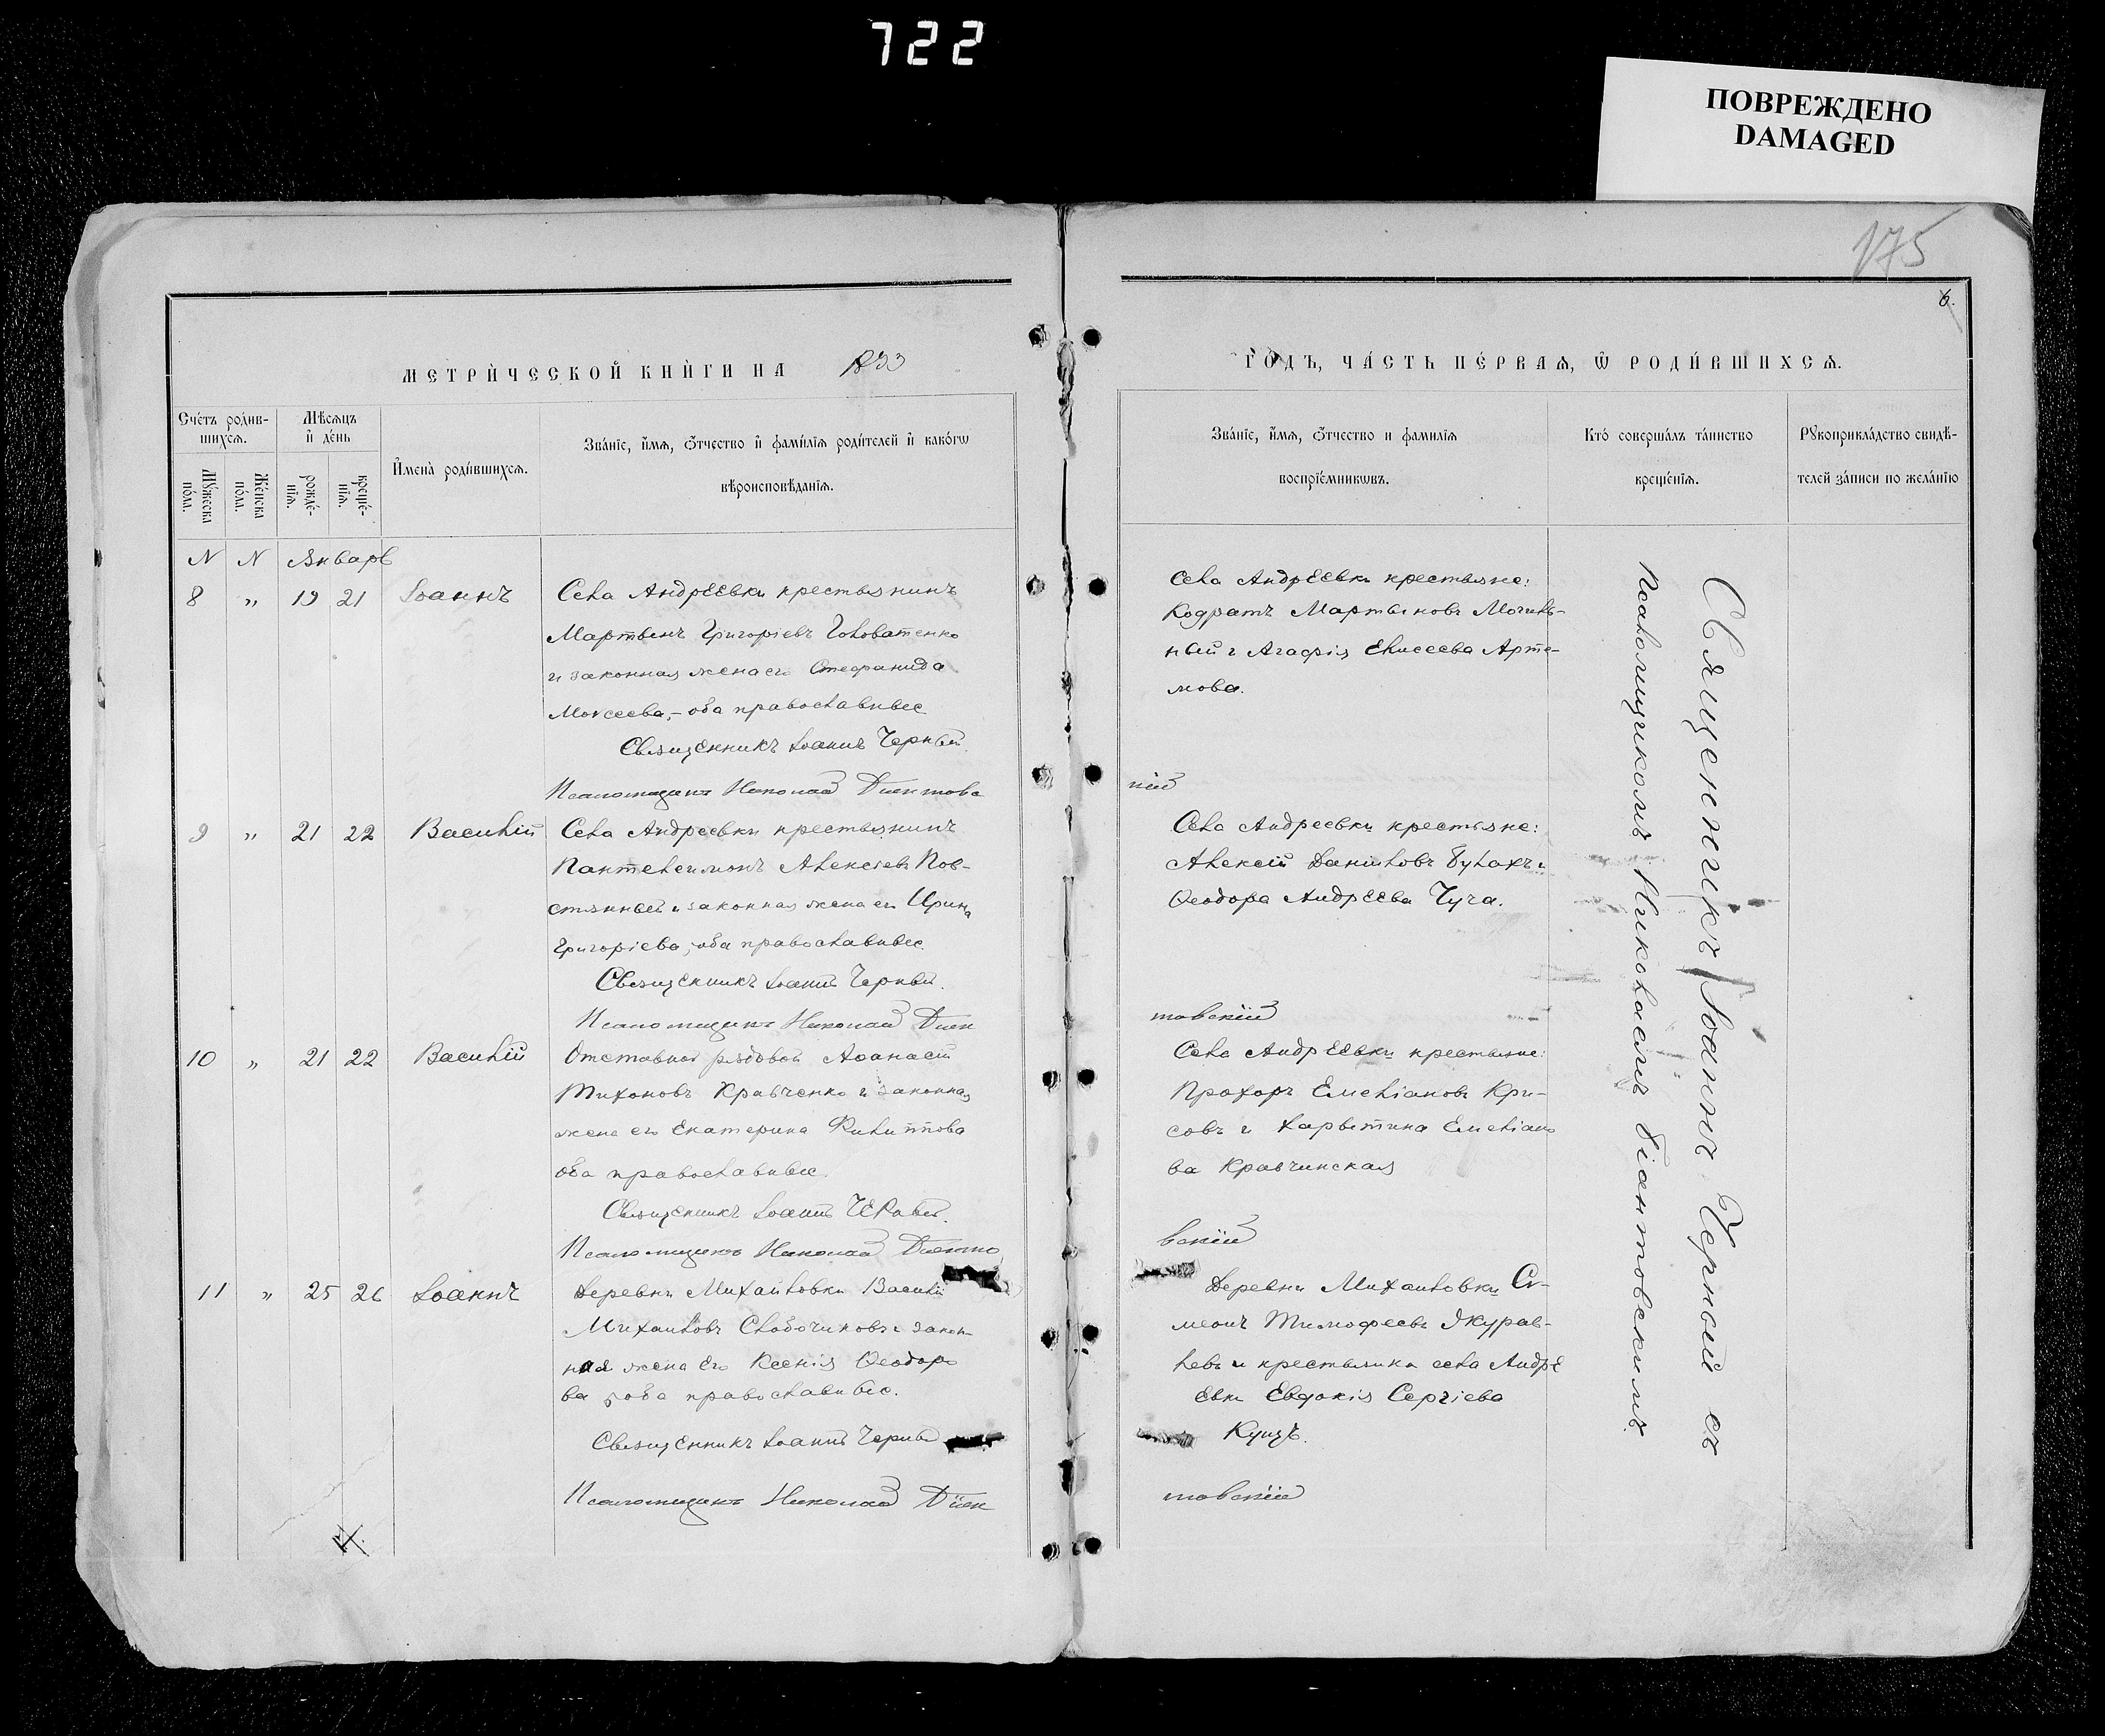 722
ПОВРЕЖДЕНО
DAMAGED
175
6.
МЕТРИ́ЧЕСКОЙ КНИ́ГИ НА
ГО́ДЪ, ЧА́СТЬ ПЕ́РВАѦ, Ѽ РОДИ́ВШИХСѦ.
Сче́тъ роди́в-
шихсѧ.
Мѣсѧцъ
и҆ де́нь
Мꙋ́жеска
по́ла.
Же́нска
по́ла.
рожде́-
нїѧ.
креще́-
нїѧ.
И҆мена̀ роди́вшихсѧ.
Зва́нїе, и҆́мѧ, ѻ҆́тчество и҆ фами́лїѧ роди́телей и҆ како́гѡ
вѣроисповѣ́данїѧ.
Зва́нїе, и҆́мѧ, ѻ҆́тчество и фамилїѧ
воспрїе́мникѡвъ.
Кто́ соверша́лъ та́инство
креще́нїѧ.
Рꙋкоприкла́дство свидѣ́-
телей за́писи по жела́нїю
N N Январь
8 „ 19 21 Іоаннъ
Села Андреевки крестьянинъ
Мартинъ Григоріевъ Головатенко
и законная жена его Стефанида
Моисеева, – оба православные
Священникъ Іоаннъ Черный.
Псаломщикъ Николай
Села Андреевки крестьяне:
Кодратъ Мартыновъ Могиль-
ный и Агафія Елисеева Арте-
мова.
9 „ 21 22 Василій
Села Андреевки крестьянинъ
Пантелеимонъ Алексіевъ Пов-
стянный и законная жена его Ирина
Григоріева, оба православные.
Священникъ Іоаннъ Черный.
Псаломщикъ Николай Біян
товскій
Села Андреевки крестьяне:
Алексій Даніиловъ Булахъ и
Ѳеодора Андреева Чуча.
10 „ 21 22 Василій
Отставной рядовой Аѳанасій
Тихоновъ Кравченко и законная
жена его Екатерина Филиппова
оба православные.
Священникъ Іоаннъ Черный.
Псаломщикъ Николай Біянто
вскій
Села Андреевки крестьяне:
Прохоръ Емеліановъ Кри-
совъ и Харытина Емеліано
ва Кравчинская
11 „ 25 26 Іоаннъ
Деревни Михайловки Василій
Михаиловъ Слабочиковъ и закон-
ная жена его Ксенія Ѳеодоро
ва, оба православные.
Священникъ Іоаннъ Черный
Псаломщикъ Николай Біян
товскій
Деревни Михаиловки Си-
меонъ Тимоѳеевъ Журав-
левъ и крестьянка села Андре
евки Евдокія Сергіева
Куцъ.
Священникъ Іоаннъ Черный съ
Псаломщикомъ Николаемъ Біантовскимъ.